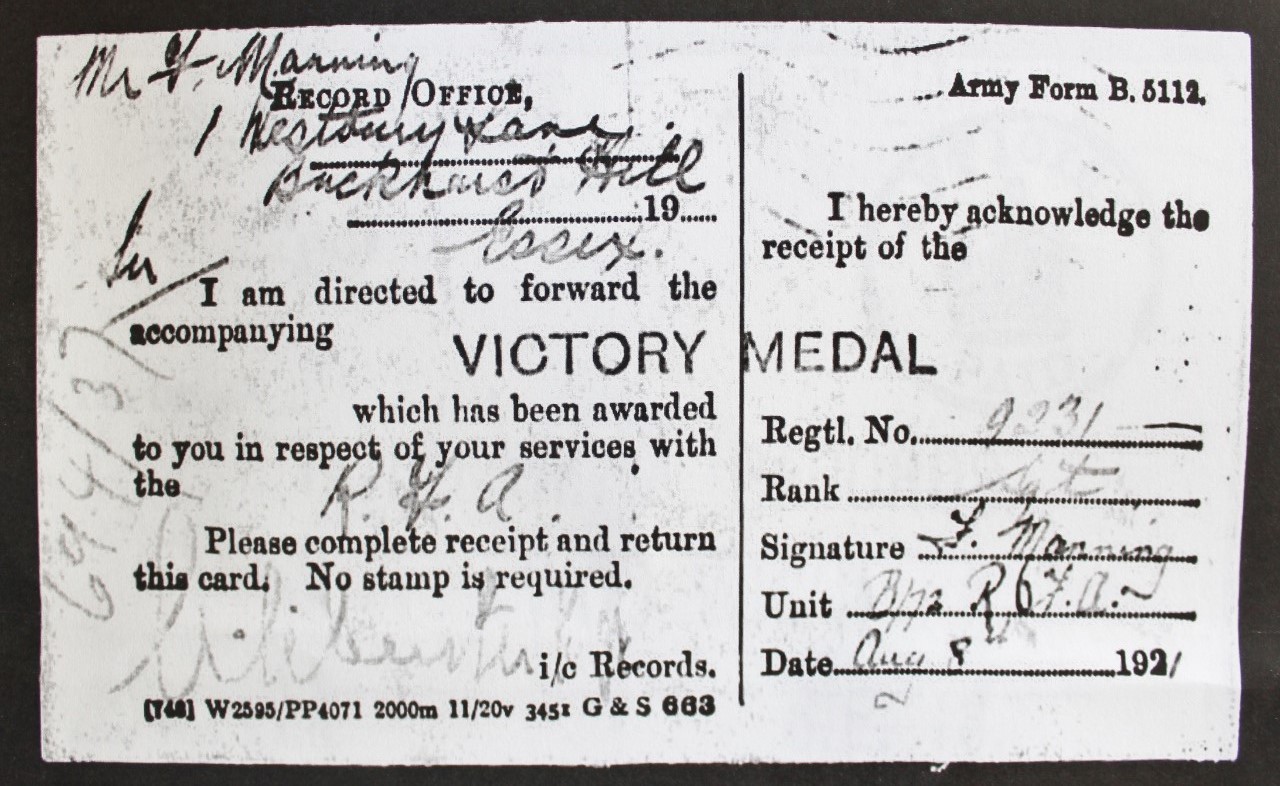 Mr F. Manning
RECORD OFFICE,
1 Lane
Buckhurst Hill
19
Essex.
Sir
I am directed to forward the
accompanying
VICTORY MEDAL
which has been awarded
to you in respect of your services with
the
R. F. A.
Please complete receipt and return
this card. No stamp is required.
i/c Records.
W2595/PP4071 2000m 11/20v 3451 G & S 663
Army Form B. 5112.
I hereby acknowledge the
receipt of the
Regtl. No. 9231
Rank Sgt
Signature F. Manning
Unit R.F.A.
Date Aug 8th 1921
694/37